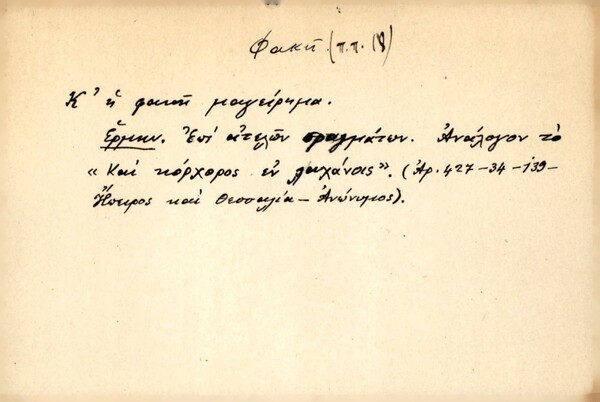 Φακῆ (π.π. 18)
Κ' ἡ φακῆ μαγείρημα.
Ἑρμην. Ἐπί ἀτελῶν πραγμάτων. Ἀνάλογον τὸ
« Καί κόρχορος ἐν λαχάνοις ». (Ἀρ. 427-34-139-
Ἤπειρος καί Θεσσαλία - Ἀνώνυμος).